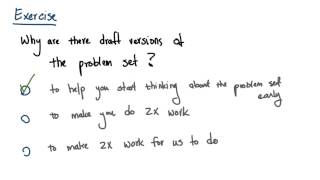 Exercise
Why are there draft versions of
the problem set?
to help you start thinking about the problem set
early
to make you do 2x work
to make 2x work for us to do